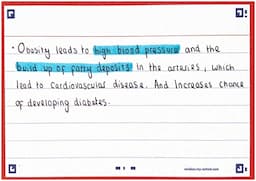 · Obesity leads to high blood pressure and the
build up of fatty deposits in the arteries, which
lead to cardiovascular disease. And increases chance
of developing diabetes.